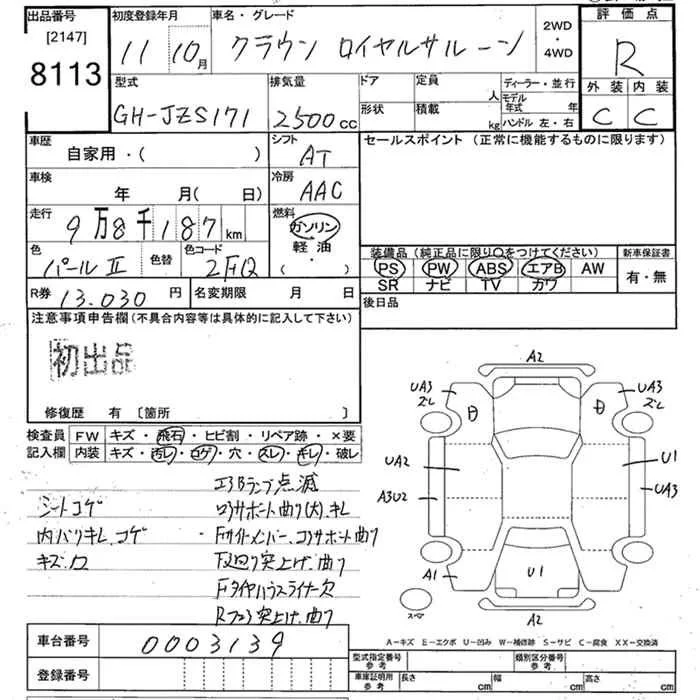 出品番号
[2147]
8113
初度登録年月
11 10月
車名・グレード
クラウン ロイヤルサルーン
2WD
・
4WD
評価点
R
型式
GH-JZS171
排気量
2500cc
ドア
定員
人
形状
積載
kg
ディーラー・並行
モデル年式 年
ハンドル 左・右
外装 内装
C C
車歴
自家用・( )
シフト
AT
セールスポイント (正常に機能するものに限ります)
車検
年 月( 日)
冷房
AAC
走行
9万8千187km
燃料
ガソリン
軽油
( ・ )
色
パールⅡ
色替
色コード
装備品 (純正品に限り○をつけてください)
新車保証書
PS PW ABS エアB AW
SR ナビ TV カワ
有・無
R券 13.030 円
名変期限 月 日
後日品
注意事項申告欄(不具合内容等は具体的に記入して下さい)
初出品
修復歴 有 [箇所 ]
検査員記入欄
FW キズ・飛石・ヒビ割・リペア跡・×要
内装 キズ・汚レ・コゲ・穴・スレ・キレ・破レ
エアBランプ点滅
シートコゲ
ロアサポート曲り(大)、キレ
内バリキレ、コゲ
Fサイドメンバー、コアサポート曲り
キズ、穴
F廻り突上げ、曲り
Fタイヤハウスライナー欠
Rフロア突上げ、曲り
A2
UA3
ズレ
UA3
ズレ
UA2
U1
A3U2
UA3
A1
U1
スペア
A2
A-キズ E-エクボ U-凹み W-補修跡 S-サビ C-腐食 XX-交換済
車台番号 0003139
登録番号
型式指定番号
参考
類別区分番号
参考
車庫証明用
参考
長さ cm
幅 cm
高さ cm